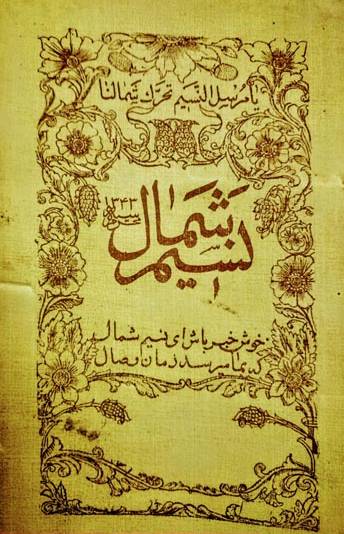 یا مرسل النسیم تحرك شمالنا
نسیم شمال
۱۳۴۳
خوش خبر باش ای نسیم شمال
که بما میرسد زمان وصال